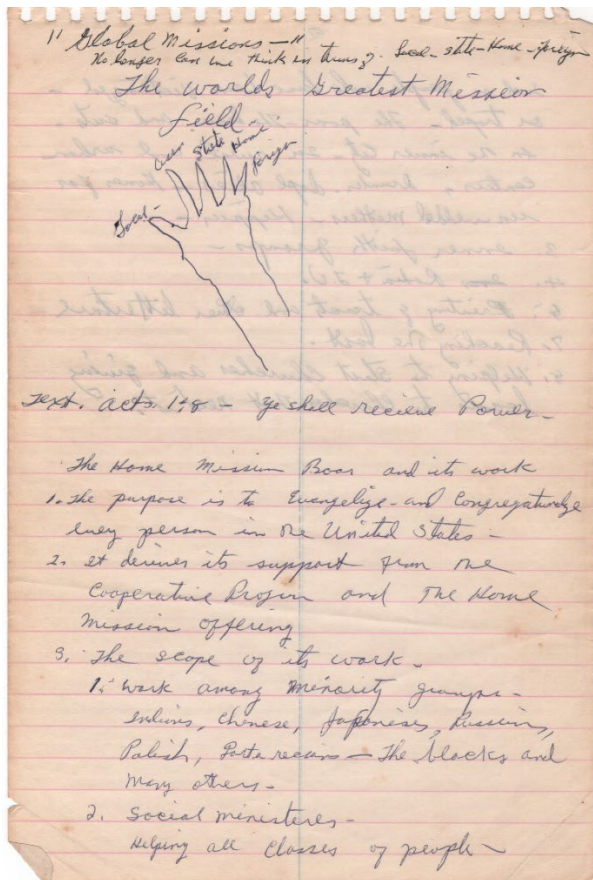 " Global Missions — "
No longer can we think in terms of. Local - state - Home - foreign
The worlds Greatest Mission
field -
State Home
foreign
Local -
Text. acts. 1:8 - ye shall recieve Power -
The Home Mission Boar and its work
1. The purpose is to Evangelize - and Congregationalize
every person in the United States -
2. et derives its support from the
Cooperative Program and The Home
Mission offering
3. The scope of its work -
1. Work among Minority groups -
Indians, Chinese, Japoneses, Russians,
Polish, — The blacks and
Many others -
2. Social ministeres -
Helping all classes of people -